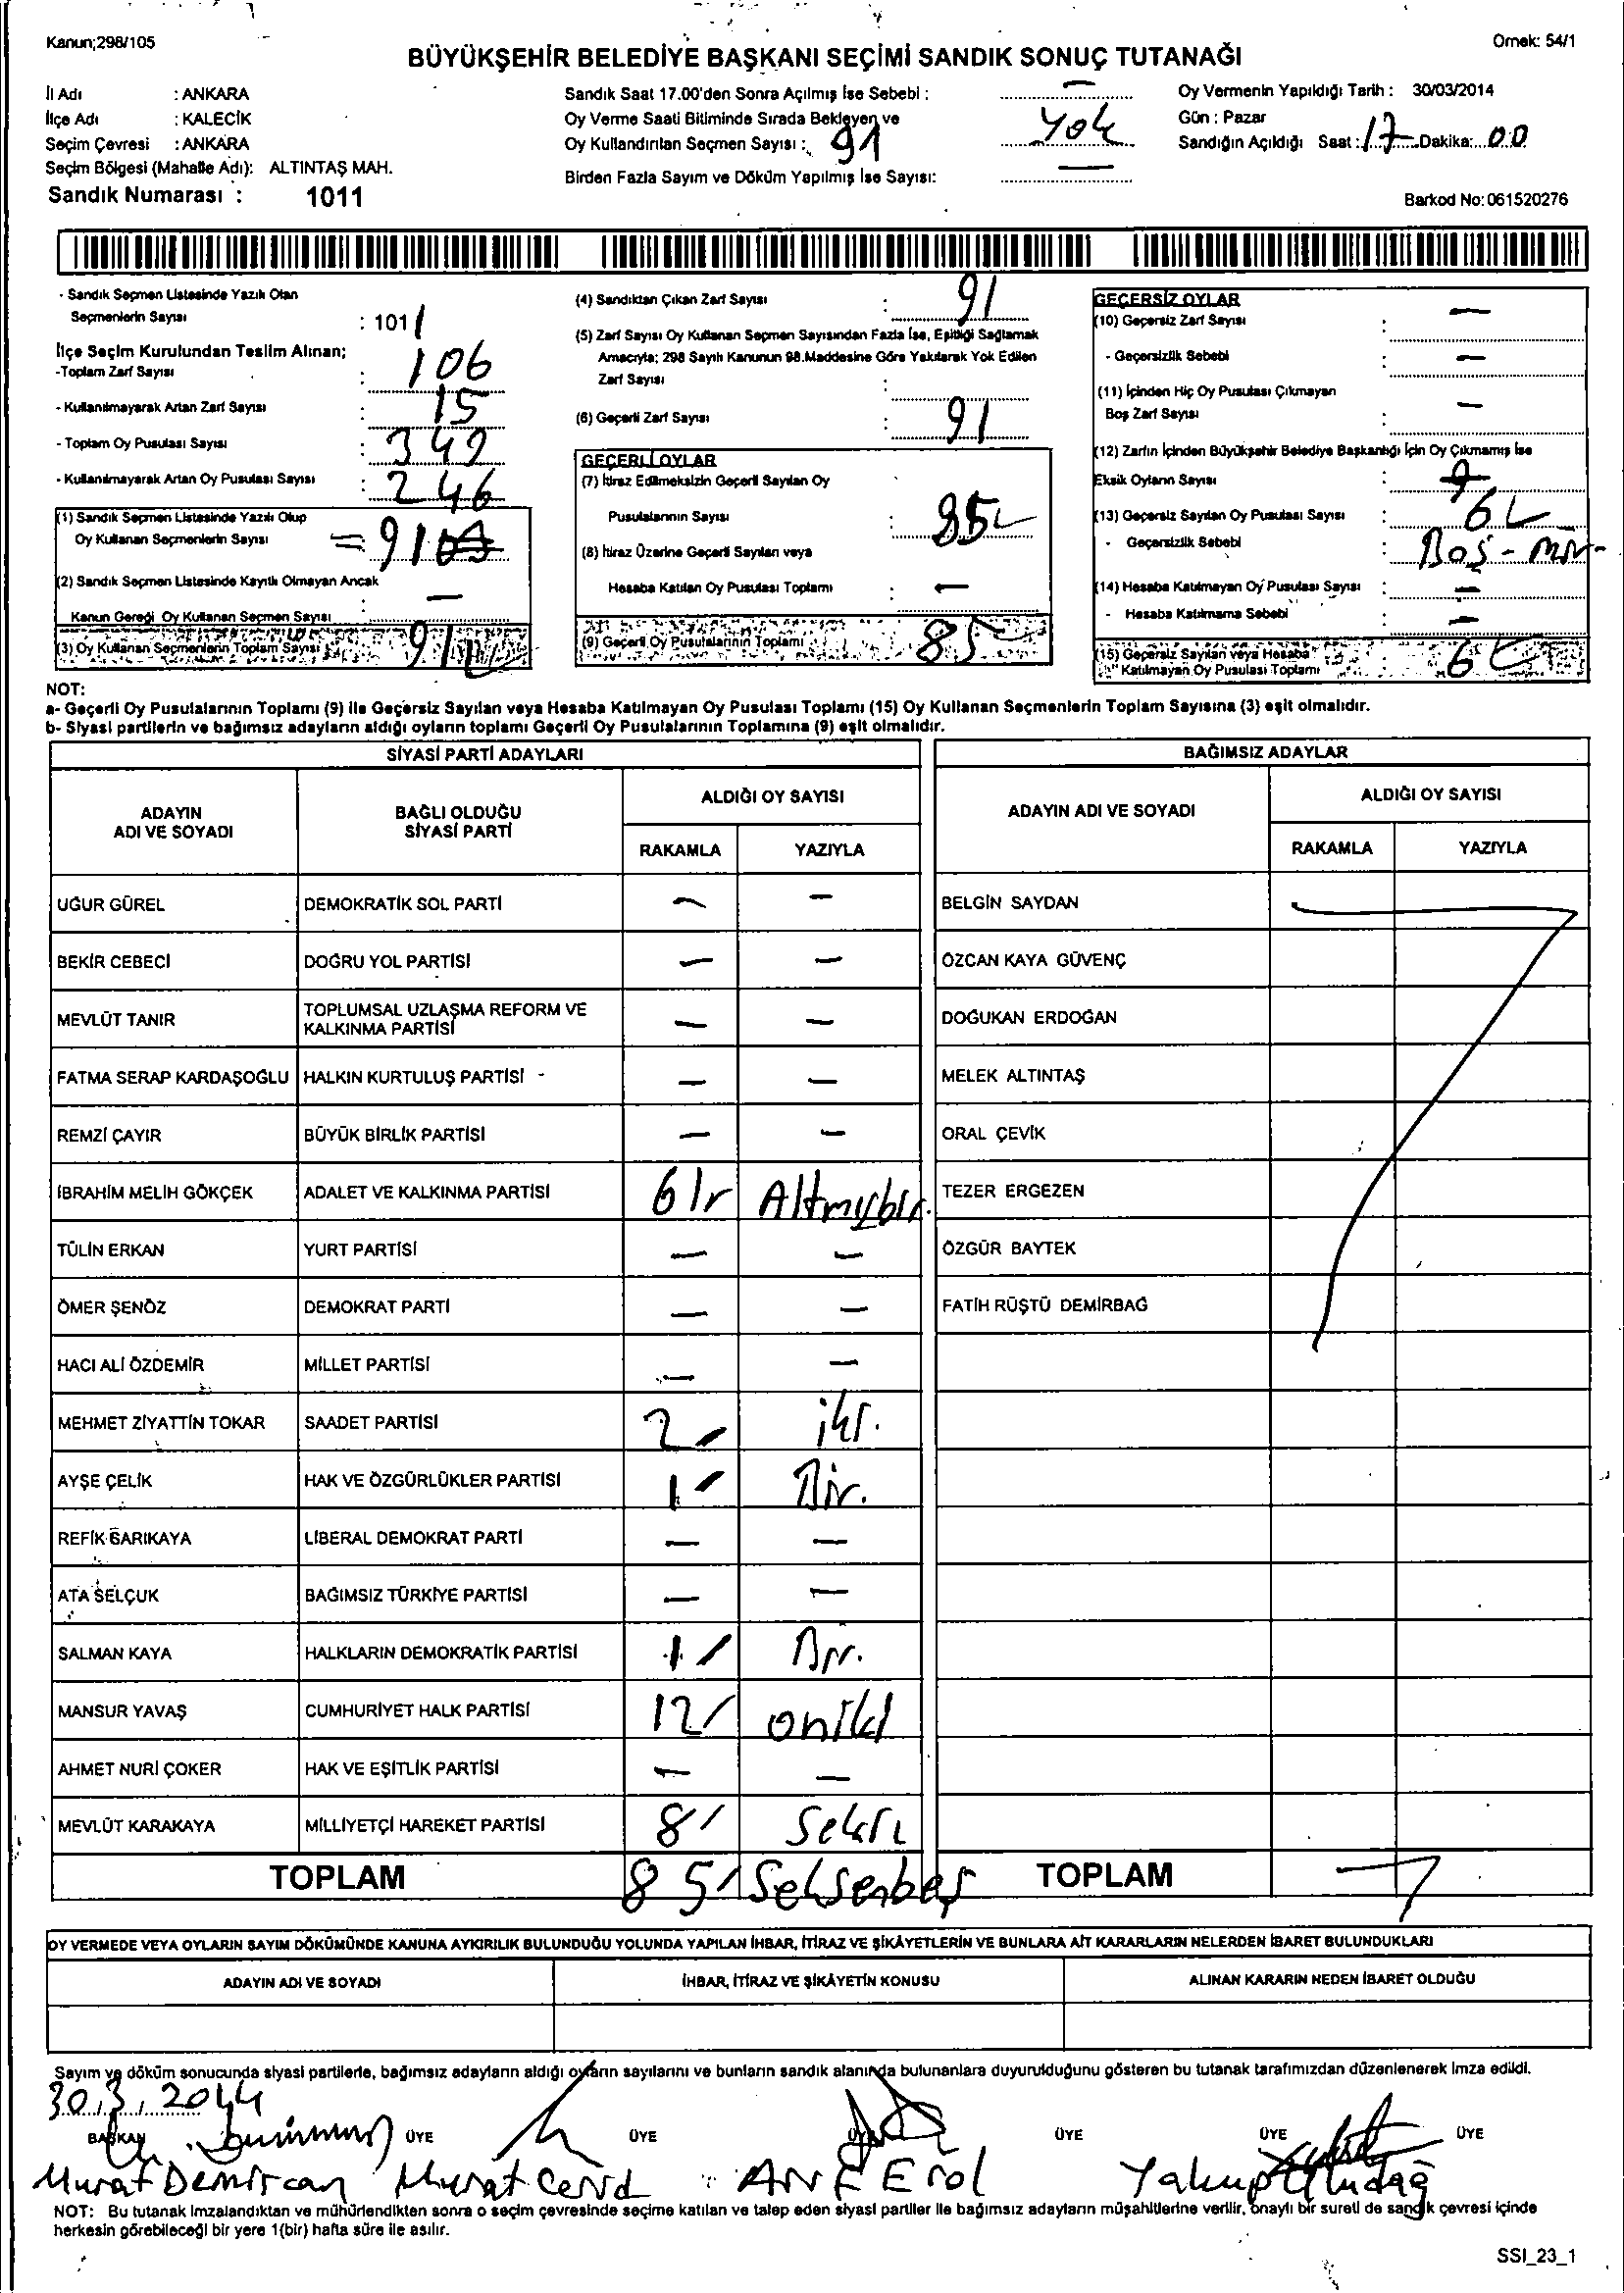 Kanun;298/105
Örnek: 54/1
BÜYÜKŞEHİR BELEDİYE BAŞKANI SEÇİMİ SANDIK SONUÇ TUTANAĞI
İl Adı : ANKARA
İlçe Adı : KALECİK
Seçim Çevresi : ANKARA
Seçim Bölgesi (Mahalle Adı): ALTINTAŞ MAH.
Sandık Numarası : 1011
Sandık Saat 17.00'den Sonra Açılmış İse Sebebi : —
Oy Verme Saati Bitiminde Sırada Bekleyen ve
Oy Kullandırılan Seçmen Sayısı : 91 Yok
Birden Fazla Sayım ve Döküm Yapılmış İse Sayısı: —
Oy Vermenin Yapıldığı Tarih : 30/03/2014
Gün : Pazar
Sandığın Açıldığı Saat : 17 Dakika: 00
Barkod No: 061520276
- Sandık Seçmen Listesinde Yazılı Olan
Seçmenlerin Sayısı : 101
İlçe Seçim Kurulundan Teslim Alınan;
-Toplam Zarf Sayısı : 106
- Kullanılmayarak Artan Zarf Sayısı : 15
- Toplam Oy Pusulası Sayısı : 342
- Kullanılmayarak Artan Oy Pusulası Sayısı : 246
(1) Sandık Seçmen Listesinde Yazılı Olup
Oy Kullanan Seçmenlerin Sayısı = 91
(2) Sandık Seçmen Listesinde Kayıtlı Olmayan Ancak
Kanun Gereği Oy Kullanan Seçmen Sayısı : —
(3) Oy Kullanan Seçmenlerin Toplam Sayısı : 91
(4) Sandıktan Çıkan Zarf Sayısı : 91
(5) Zarf Sayısı Oy Kullanan Seçmen Sayısından Fazla İse, Eşitliği Sağlamak
Amacıyla; 298 Sayılı Kanunun 98.Maddesine Göre Yakılarak Yok Edilen
Zarf Sayısı :
(6) Geçerli Zarf Sayısı : 91
GEÇERLİ OYLAR
(7) İtiraz Edilmeksizin Geçerli Sayılan Oy
Pusulalarının Sayısı : 85
(8) İtiraz Üzerine Geçerli Sayılan veya
Hesaba Katılan Oy Pusulası Toplamı : —
(9) Geçerli Oy Pusulalarının Toplamı : 85
GEÇERSİZ OYLAR
(10) Geçersiz Zarf Sayısı : —
- Geçersizlik Sebebi : —
(11) İçinden Hiç Oy Pusulası Çıkmayan
Boş Zarf Sayısı : —
(12) Zarfın İçinden Büyükşehir Belediye Başkanlığı İçin Oy Çıkmamış İse
Eksik Oyların Sayısı :
(13) Geçersiz Sayılan Oy Pusulası Sayısı : 6
- Geçersizlik Sebebi : Boş -
(14) Hesaba Katılmayan Oy Pusulası Sayısı : —
- Hesaba Katılmama Sebebi : —
(15) Geçersiz Sayılan veya Hesaba
Katılmayan Oy Pusulası Toplamı : 6
NOT:
a- Geçerli Oy Pusulalarının Toplamı (9) ile Geçersiz Sayılan veya Hesaba Katılmayan Oy Pusulası Toplamı (15) Oy Kullanan Seçmenlerin Toplam Sayısına (3) eşit olmalıdır.
b- Siyasi partilerin ve bağımsız adayların aldığı oyların toplamı Geçerli Oy Pusulalarının Toplamına (9) eşit olmalıdır.
SİYASİ PARTİ ADAYLARI
ADAYIN ADI VE SOYADI
BAĞLI OLDUĞU SİYASİ PARTİ
ALDIĞI OY SAYISI
RAKAMLA YAZIYLA
UĞUR GÜREL DEMOKRATİK SOL PARTİ — —
BEKİR CEBECİ DOĞRU YOL PARTİSİ — —
MEVLÜT TANIR TOPLUMSAL UZLAŞMA REFORM VE KALKINMA PARTİSİ — —
FATMA SERAP KARDAŞOĞLU HALKIN KURTULUŞ PARTİSİ — —
REMZİ ÇAYIR BÜYÜK BİRLİK PARTİSİ — —
İBRAHİM MELİH GÖKÇEK ADALET VE KALKINMA PARTİSİ 61 Altmışbir.
TÜLİN ERKAN YURT PARTİSİ — —
ÖMER ŞENÖZ DEMOKRAT PARTİ — —
HACI ALİ ÖZDEMİR MİLLET PARTİSİ — —
MEHMET ZİYATTİN TOKAR SAADET PARTİSİ 2 iki.
AYŞE ÇELİK HAK VE ÖZGÜRLÜKLER PARTİSİ 1 Bir.
REFİK SARIKAYA LİBERAL DEMOKRAT PARTİ — —
ATA SELÇUK BAĞIMSIZ TÜRKİYE PARTİSİ — —
SALMAN KAYA HALKLARIN DEMOKRATİK PARTİSİ 1 Bir.
MANSUR YAVAŞ CUMHURİYET HALK PARTİSİ 12 oniki
AHMET NURİ ÇOKER HAK VE EŞİTLİK PARTİSİ — —
MEVLÜT KARAKAYA MİLLİYETÇİ HAREKET PARTİSİ 8 Sekiz
TOPLAM 85 Seksenbeş
BAĞIMSIZ ADAYLAR
ADAYIN ADI VE SOYADI
ALDIĞI OY SAYISI
RAKAMLA YAZIYLA
BELGİN SAYDAN
ÖZCAN KAYA GÜVENÇ
DOĞUKAN ERDOĞAN
MELEK ALTINTAŞ
ORAL ÇEVİK
TEZER ERGEZEN
ÖZGÜR BAYTEK
FATİH RÜŞTÜ DEMİRBAĞ
TOPLAM
OY VERMEDE VEYA OYLARIN SAYIM DÖKÜMÜNDE KANUNA AYKIRILIK BULUNDUĞU YOLUNDA YAPILAN İHBAR, İTİRAZ VE ŞİKÂYETLERİN VE BUNLARA AİT KARARLARIN NELERDEN İBARET BULUNDUKLARI
ADAYIN ADI VE SOYADI İHBAR, İTİRAZ VE ŞİKÂYETİN KONUSU ALINAN KARARIN NEDEN İBARET OLDUĞU
Sayım ve döküm sonucunda siyasi partilerle, bağımsız adayların aldığı oyların sayılarını ve bunların sandık alanında bulunanlara duyurulduğunu gösteren bu tutanak tarafımızdan düzenlenerek imza edildi.
30.3.2014
BAŞKAN ÜYE ÜYE ÜYE ÜYE ÜYE ÜYE
Murat Demircan Murat Arif Erol Yakup Uludağ
NOT: Bu tutanak imzalandıktan ve mühürlendikten sonra o seçim çevresinde seçime katılan ve talep eden siyasi partiler ile bağımsız adayların müşahitlerine verilir, onaylı bir sureti de sandık çevresi içinde
herkesin görebileceği bir yere 1(bir) hafta süre ile asılır.
SSI_23_1